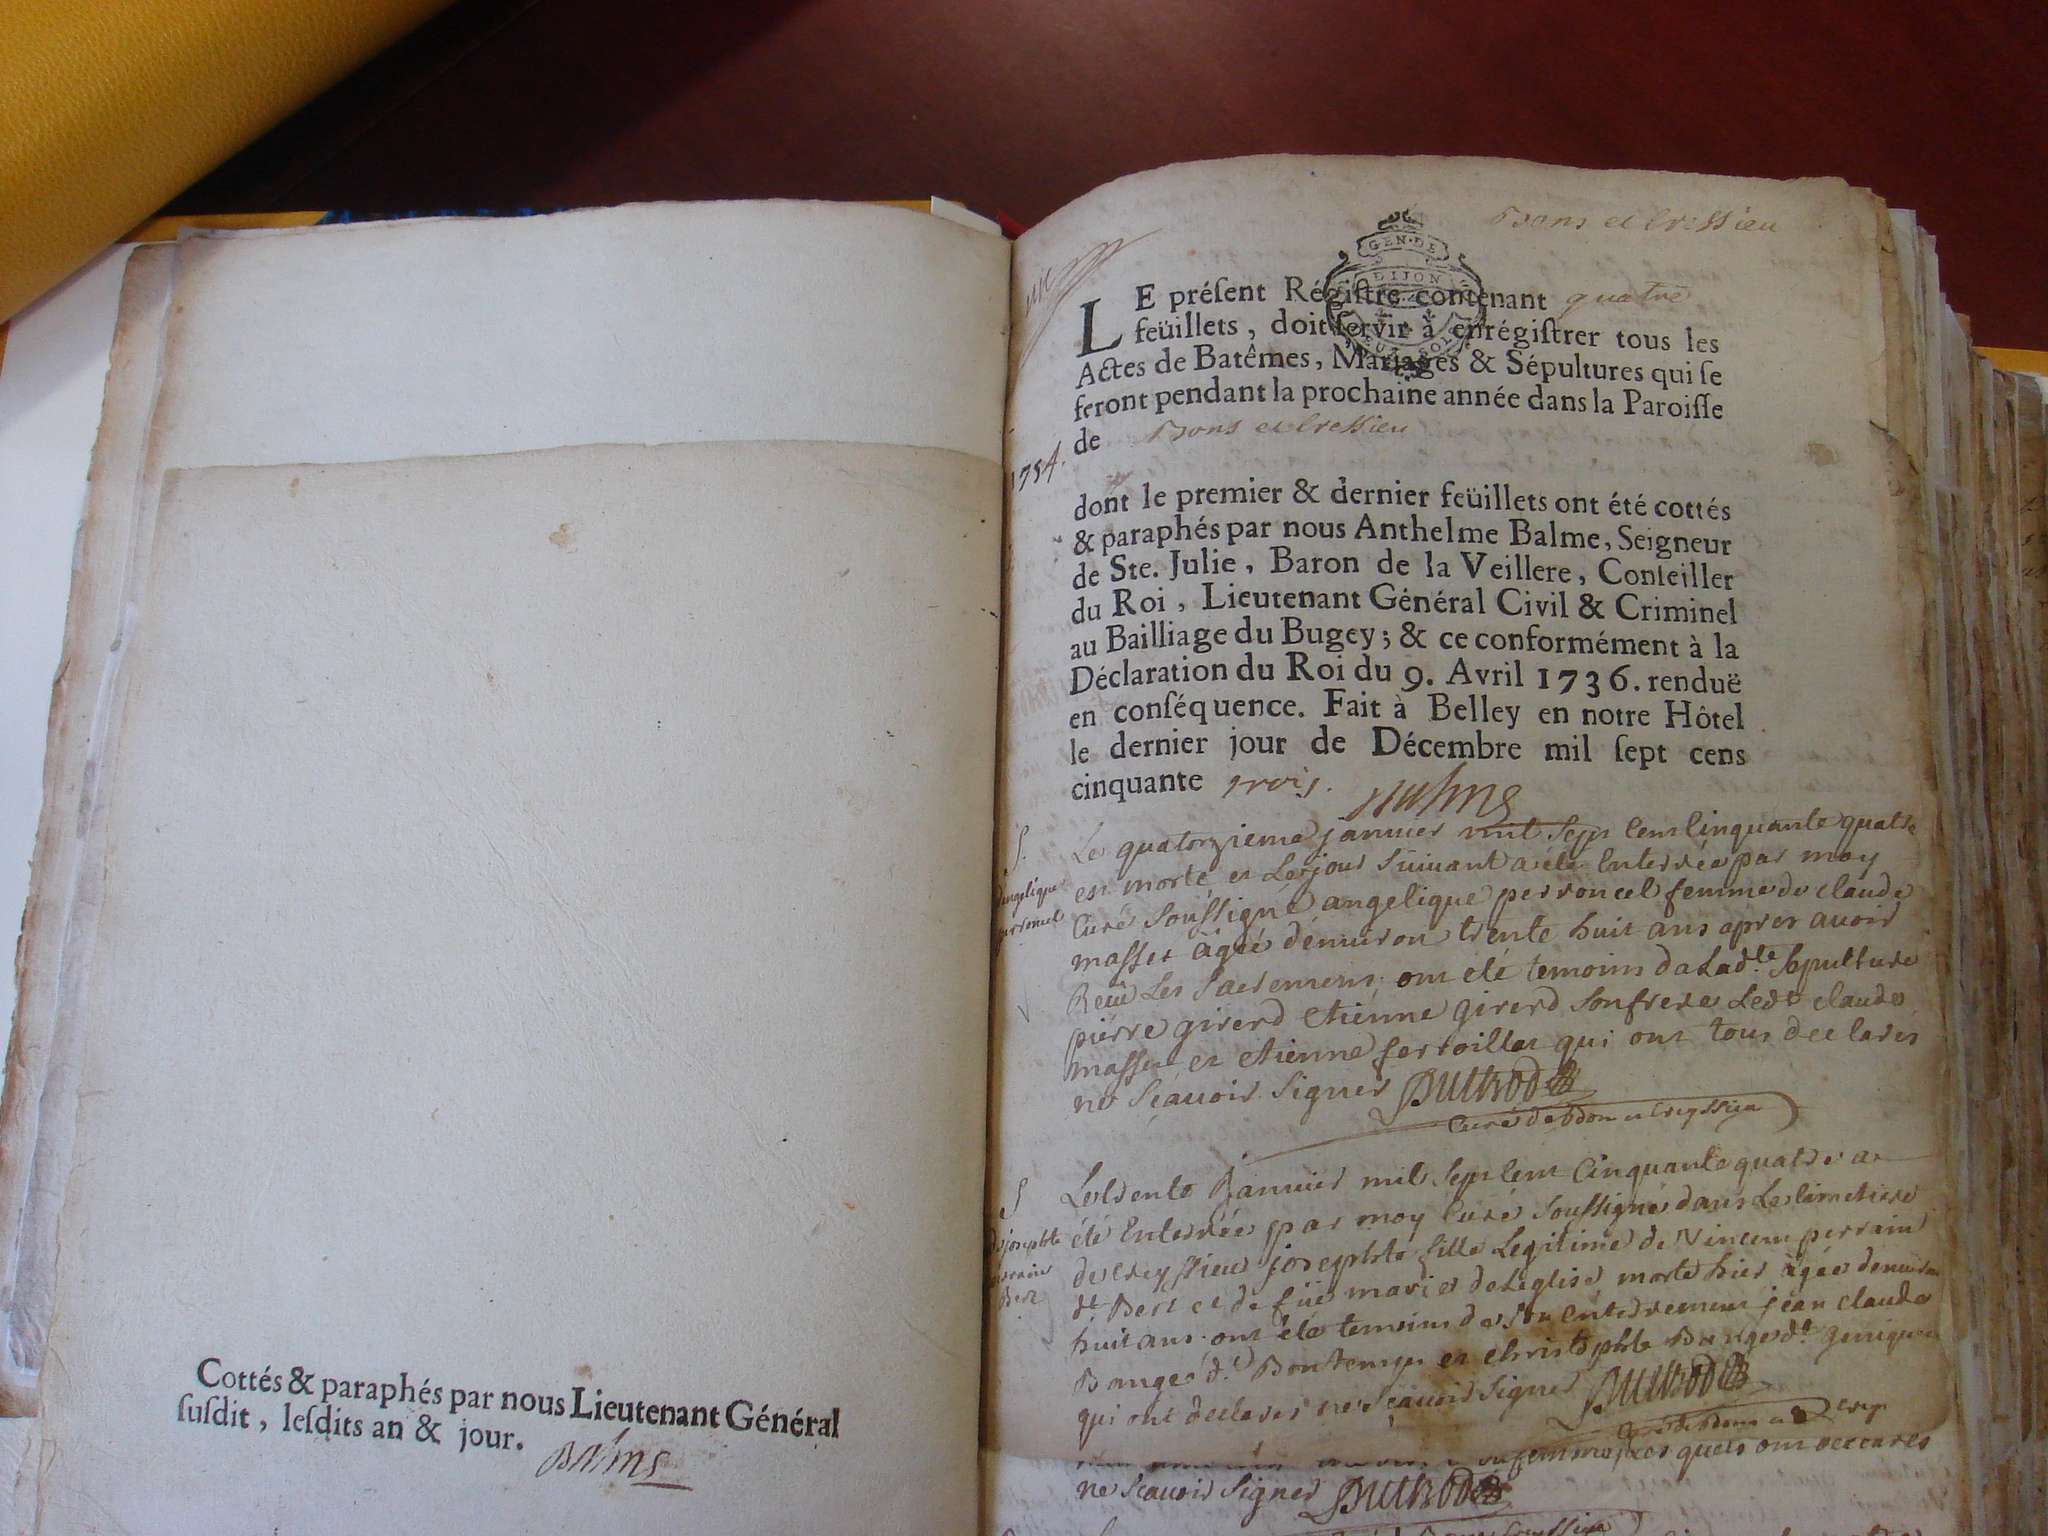 Cottés & paraphés par nous Lieutenant Général
ſuſdit, leſdits an & jour.
Balme
Bons et Cressieu
GEN·DE
DIJON
LE préſent Régiſtre contenant quatre
feüillets, doit ſervir à enrégiſtrer tous les
Actes de Batêmes, Mariages & Sépultures qui ſe
feront pendant la prochaine année dans la Paroiſſe
de Bons et Cressieu
1754.
dont le premier & dernier feüillets ont été cottés
& paraphés par nous Anthelme Balme, Seigneur
de Ste. Julie, Baron de la Veillere, Conſeiller
du Roi, Lieutenant Général Civil & Criminel
au Bailliage du Bugey; & ce conformément à la
Déclaration du Roi du 9. Avril 1736. renduë
en conſéquence. Fait à Belley en notre Hôtel
le dernier jour de Décembre mil ſept cens
cinquante trois.
Balme
S.
d'angelique
perroncel
Le quatorzieme janvier mil sept Cent Cinquante quatre
est morte et Le jour suivant a été Enterrée par moy
Curé soussigné angelique perroncel femme de claude
masset âgée d'environ trente huit ans apres avoir
Receu Les sacremens; ont été temoins de Ladte sepulture
pierre girerd etienne girerd son frere Ledt claude
masset et etienne qui ont tous declarés
ne sçavoir signer
Curé de Bon et Creyssieu
S
de josephte
perrain
Bert
Le trente Janvier mil sept Cent Cinquante quatre a
été Enterrée par moy Curé soussigné dans Le Cimetiere
de Creyssieu josephte fille Legitime de Vincent perrain
dt Bert et de füe marie de Leglise morte hier âgée d'environ
huit ans. ont été temoins de son enterrement jean claude
Bange dt Bontemps et christophle Bange dt
qui ont declarés ne sçavoir signer
sa femme, Les quels ont declarés
ne sçavoir signer